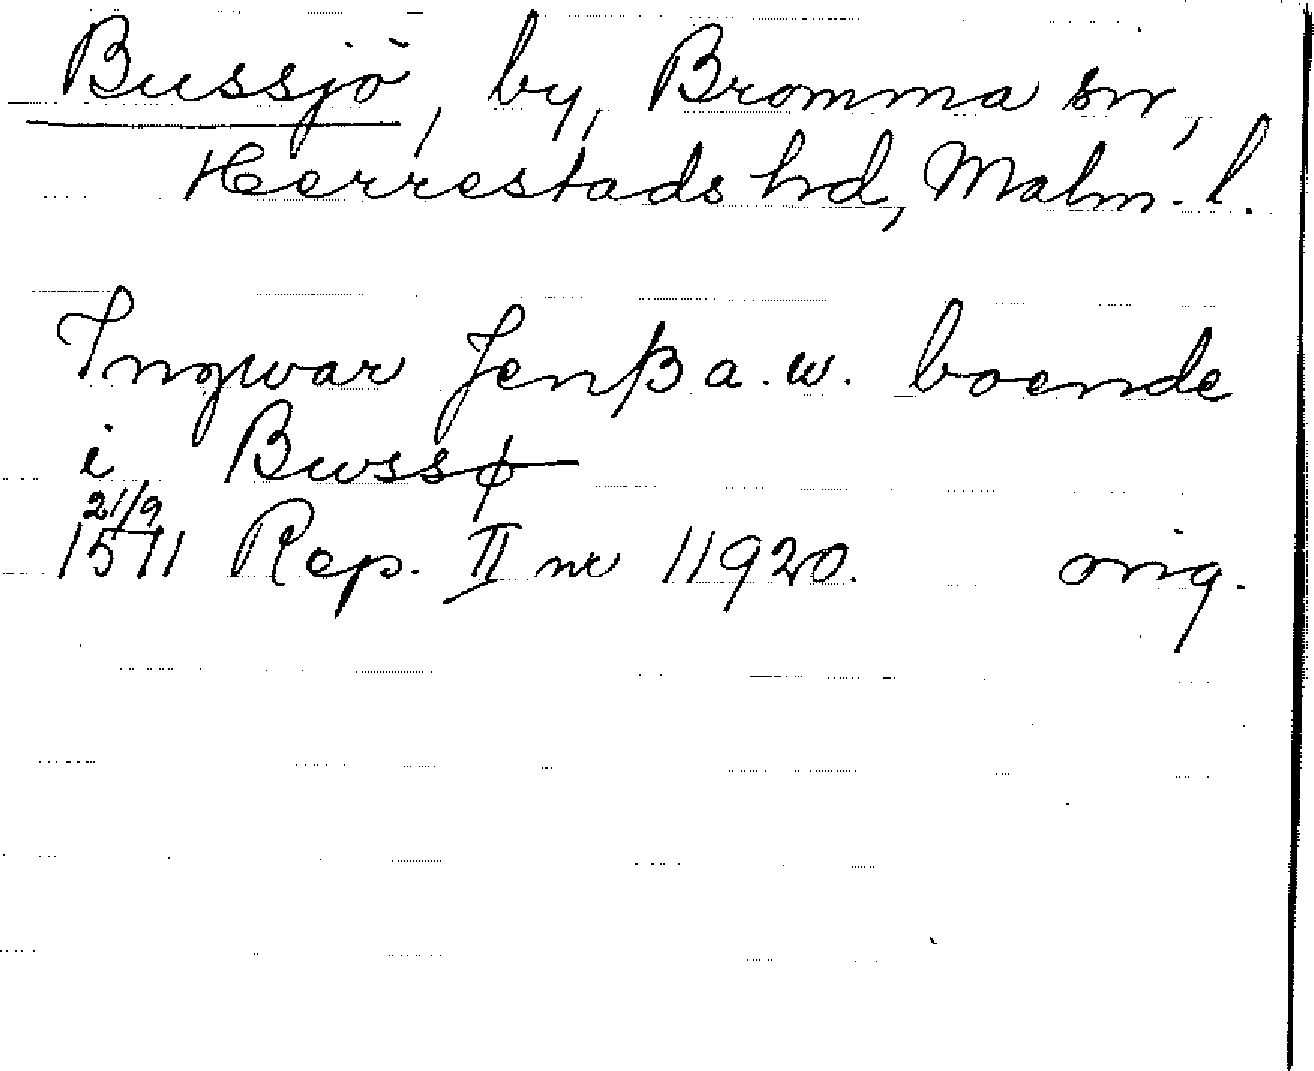 Bussjö, by, Bromma sn,
Herrestads hd, Malm. l.
Ingwar Jenßa. w. boende
i Bwssø
21/9
1511 Rep. II nr 11920. orig.